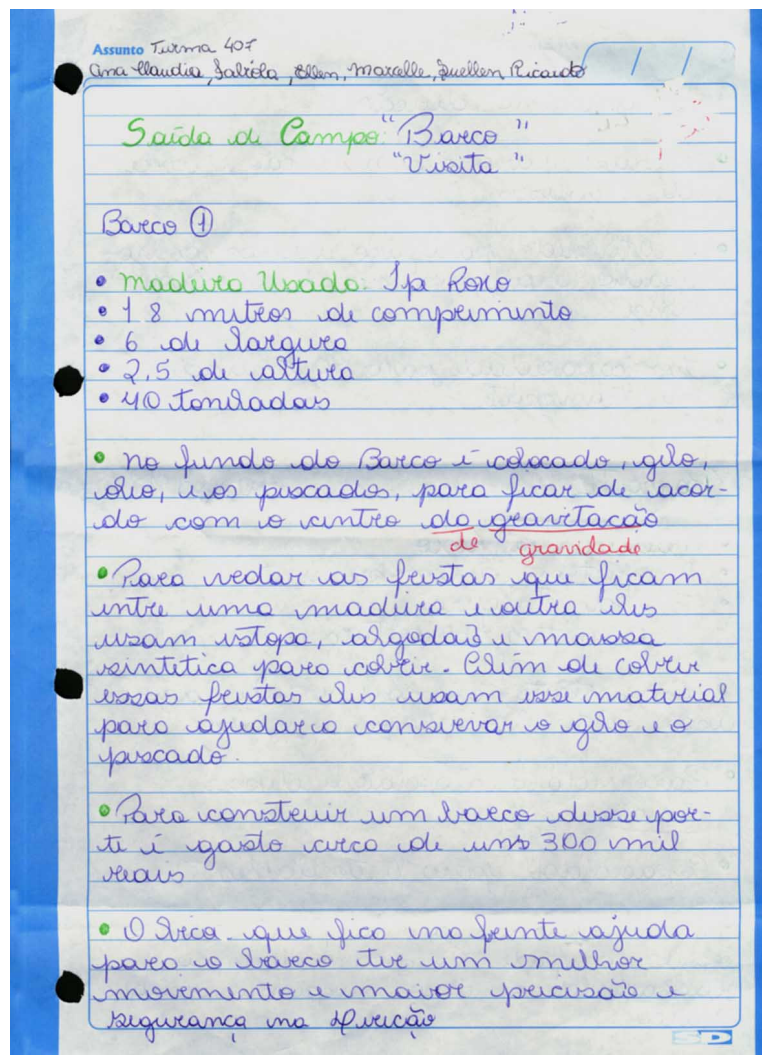 Assunto Turma 407
Ana Claudia, Fabíola, Ellen, Marcelle, Suellen, Ricardo
Saída de Campo: "Barco"
"Visita"
Barco 1
• Madeira Usada: Ipa Roxo
• 18 metros de comprimento
• 6 de largura
• 2,5 de altura
• 40 toneladas
• No fundo do Barco é colocado, gelo,
óleo, e os pescados, para ficar de acor-
do com o centro da gravitacão
de gravidade
• Para vedar as frestas que ficam
entre uma madeira e outra eles
usam estopa, algodão e massa
sintetica para cobrir. Além de cobrir
essas frestas eles usam esse material
para ajudar a conservar o gelo e o
pescado.
• Para construir um barco desse por-
te é gasto cerca de uns 300 mil
reais
• O que fica na frente ajuda
para o barco ter um melhor
movimento e maior precisão e
segurança na Direção
SD